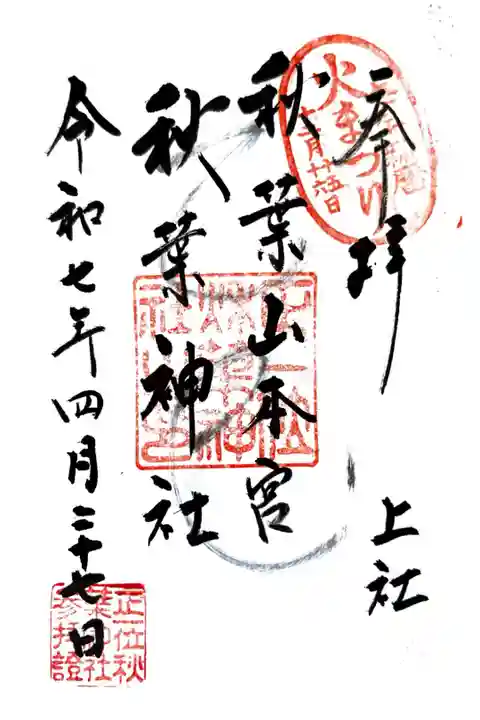 奉拝
上社
秋葉山本宮
秋葉神社
令和七年四月二十七日
火まつり
十二月十五、十六日
正一位秋
葉神社
参拝證